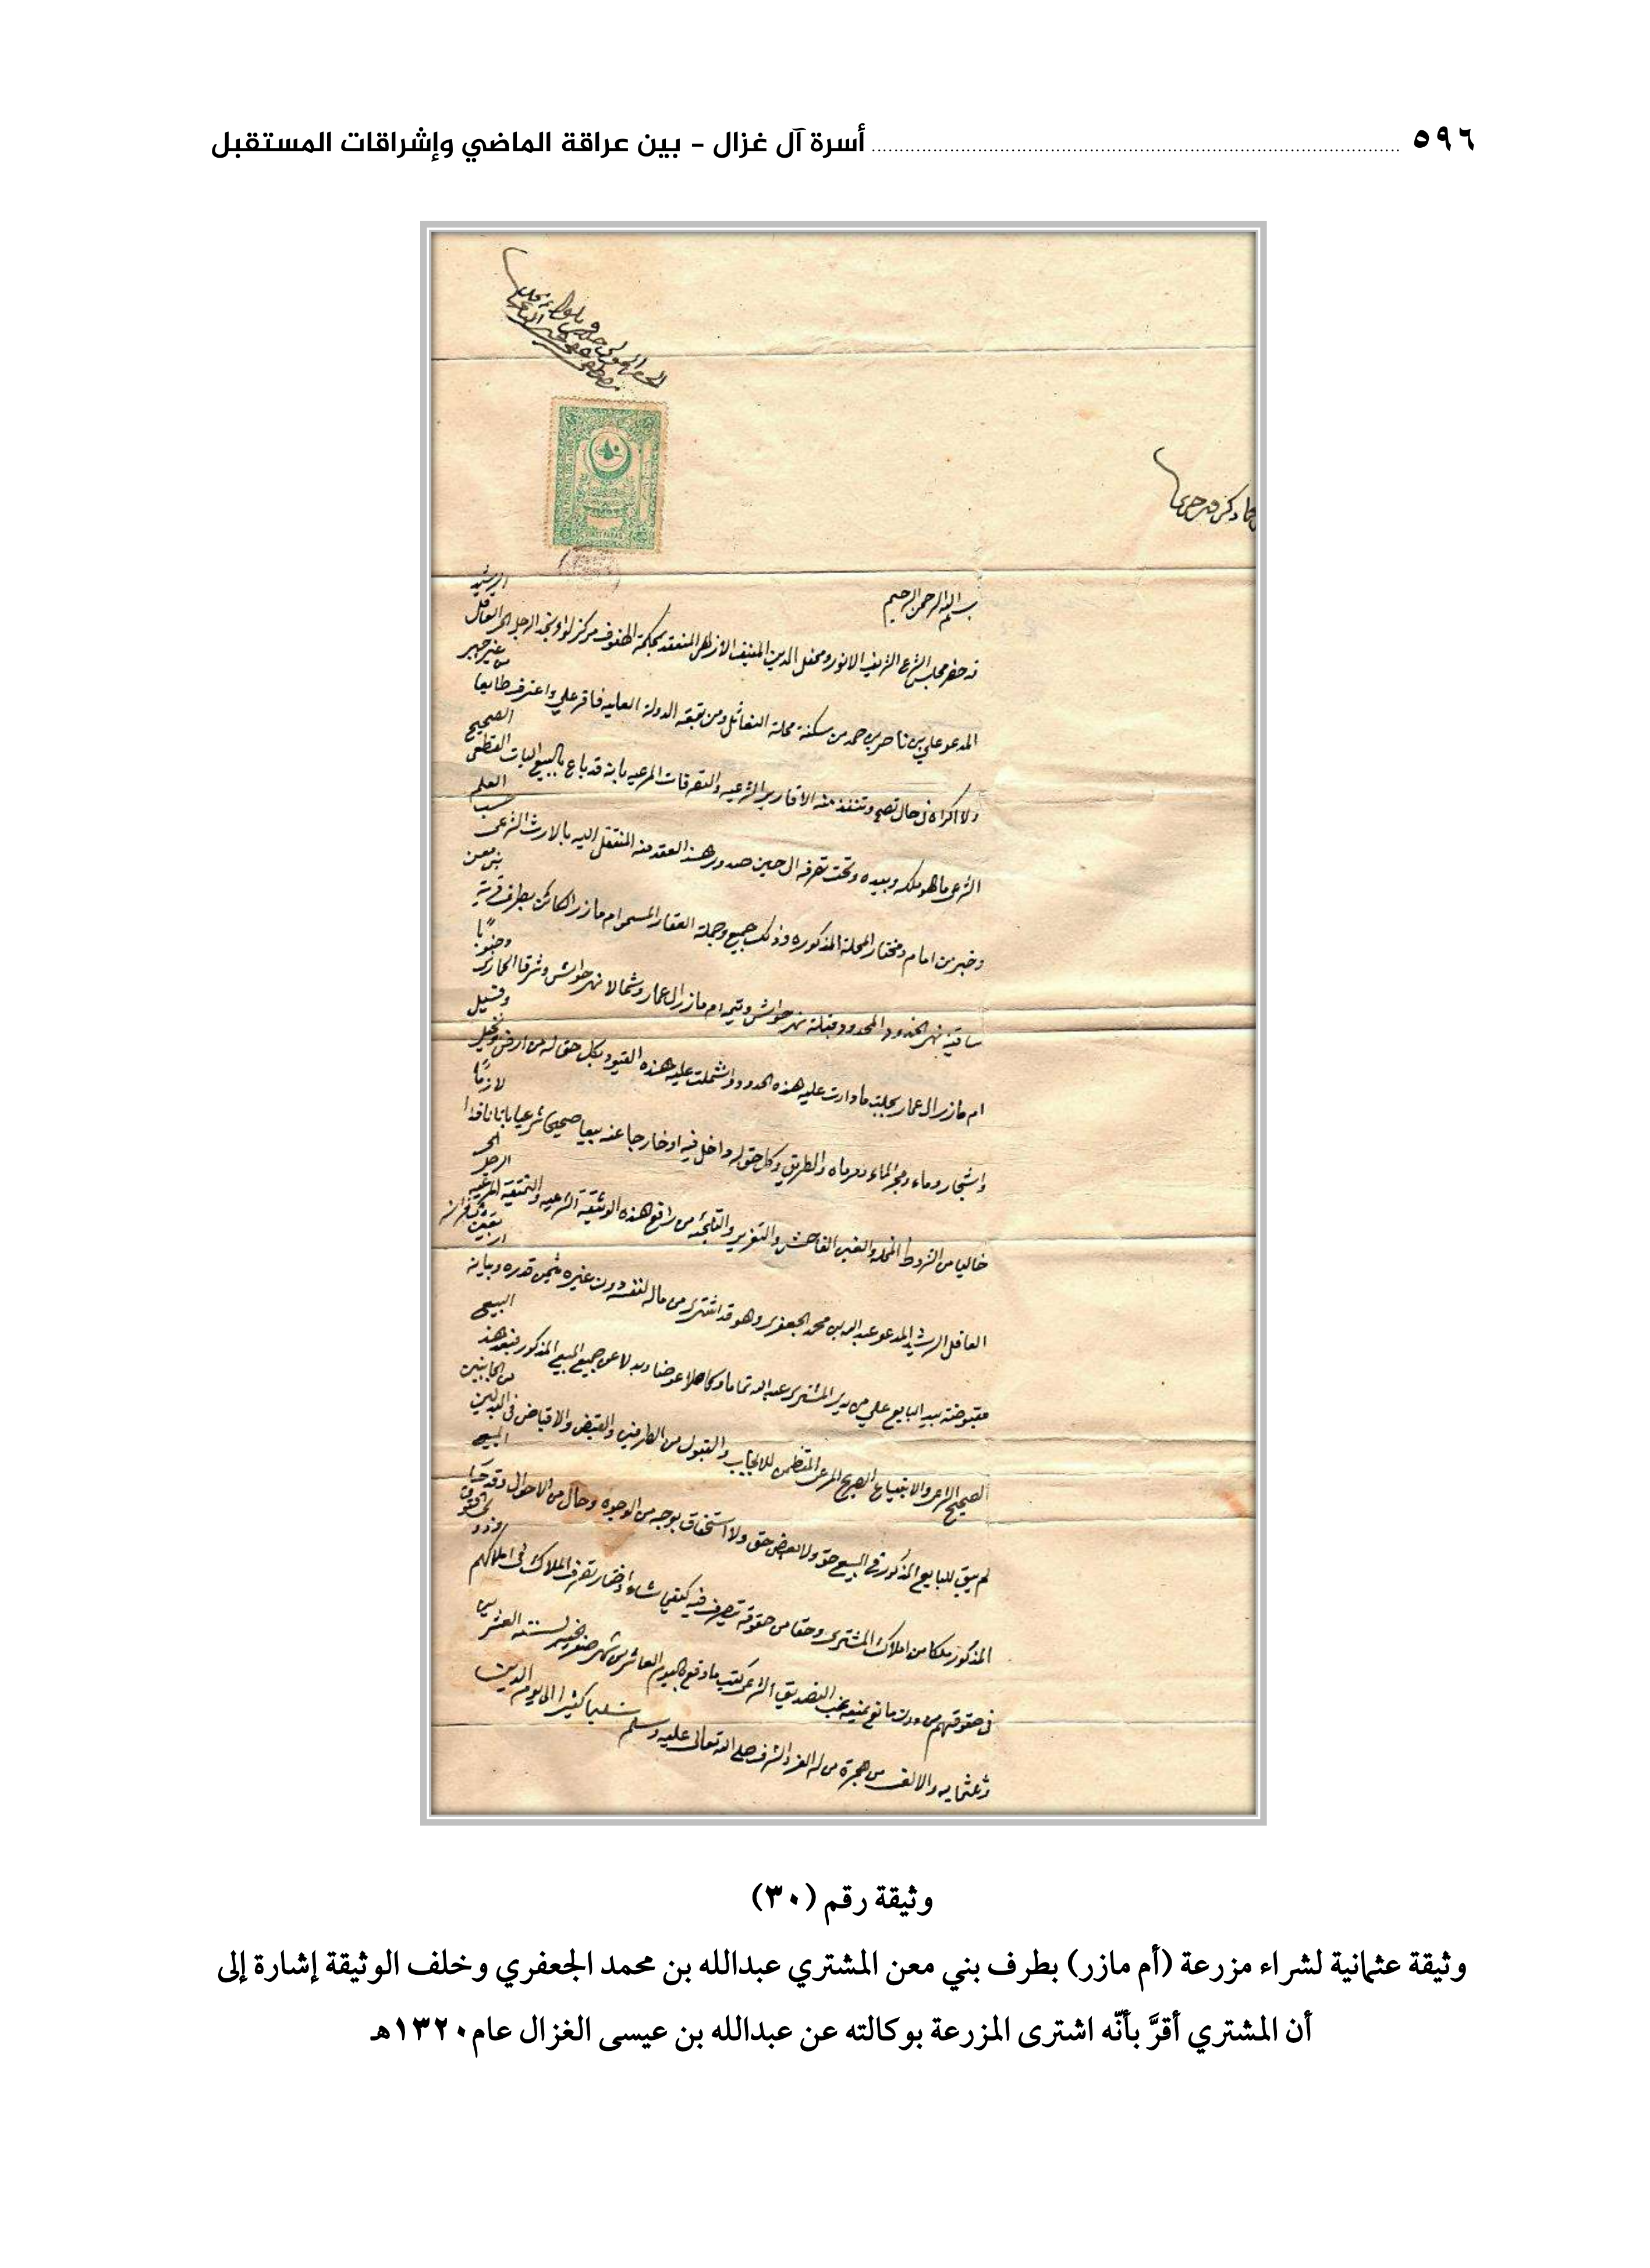 ٥٩٦ أسرة آل غزال - بين عراقة الماضي وإشراقات المستقبل
بسم الله الرحمن الرحيم
قد حضر مجلس الشرع الشريف الانور ومحفل الدين المنيف الازهر المنعقد بمحكمة الهفوف مركز لواء نجد الرجل الحر العاقل الرشيد
المدعو علي بن ناصر بن حمد من سكنة محلة النعاثل ومن تبعة الدولة العليه فاقر علي واعترف طايعا من غير جبر
ولا اكراه في حال تصح وتنفذ منه الاقارير الشرعيه والتصرفات المرعيه بانه قد باع بالبيع البات القطعي الصحيح
الشرعي ما هو ملكه وبيده وتحت تصرفه الى حين صدور هذا العقد منه المنتقل اليه بالارث الشرعي حسب العلم
وخبر من امام ومختار المحلة المذكوره وذلك جميع وجملة العقار المسمى ام مازر الكائن بطرف قرية بني معن
ساقية نهر الخدود المحدود قبلة نهر حواش وتيم ام مازر ال عمار وشمالا نهر حواش وشرقا وجنوبًا
ام مازر ال عمار بجملة ما دارت عليه هذه الحدود واشتملت عليه هذه القيود بكل حق له من ارض ونخيل وفسيل
واشجار وماء ومجر الماء ومرماه والطريق وكل حق له داخل فيه او خارجا عنه بيعا صحيحا شرعيا باتا نافذا لازمًا
خاليا من الشروط المخله والغبن الفاحش والتغرير والتلجئه من رافع هذه الوثيقة الشرعيه والنميقة المرعيه الرجل الحر
العاقل الرشيد المدعو عبد الله بن محمد الجعفري وهو قد اشترى من ماله لنفسه دون غيره بثمن قدره وبيانه
مقبوضة بيد البايع علي من يد المشتري عبد الله تماما وكاملا عوضا وبدلا عن جميع المبيع المذكور فبعد هذا البيع
الصحيح الشرعي والابتياع الصريح المرعي المتظمن للايجاب والقبول من الطرفين والقبض والاقباض في البدلين من الجانبين
لم يبق للبايع المذكور في المبيع حق ولا بعض حق ولا استحقاق بوجه من الوجوه وحال من الاحوال وقد المبيع
المذكور ملكا من املاك المشتري وحقا من حقوقه يتصرف فيه كيفي شاء واختار تصرف الملاك في املاكهم وذوو الحقوق
في حقوقهم من دون مانع يمنعه غب التصديق الشرعي كتب ما وقع باليوم العاشر من شهر صفر الخير لسنة العشرين
وثلاثمايه والالف من هجرة من له العز والشرف صلى الله تعالى عليه وسلم تسليما كثيرا الى يوم الدين
وثيقة رقم (٣٠)
وثيقة عثمانية لشراء مزرعة (أم مازر) بطرف بني معن المشتري عبدالله بن محمد الجعفري وخلف الوثيقة إشارة إلى
أن المشتري أقرَّ بأنّه اشترى المزرعة بوكالته عن عبدالله بن عيسى الغزال عام ١٣٢٠هـ